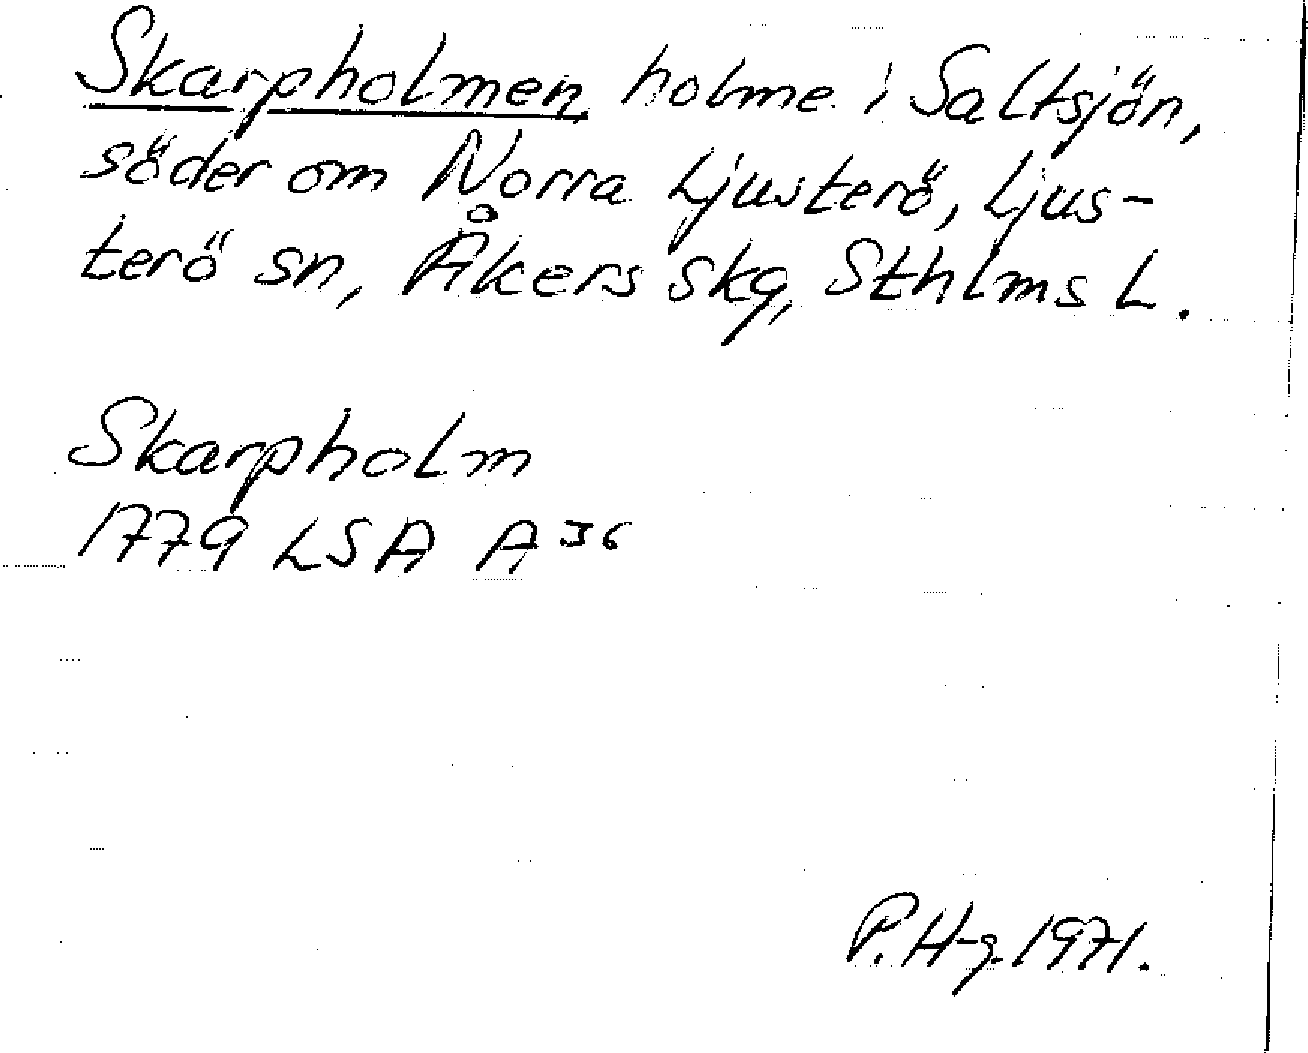 Skarpholmen holme i Saltsjön,
söder om Norra Ljusterö, Ljus-
terö sn, Åkers skg, Sthlms L.
Skarpholm
1779 LSA A 36
P. H-g. 1971.